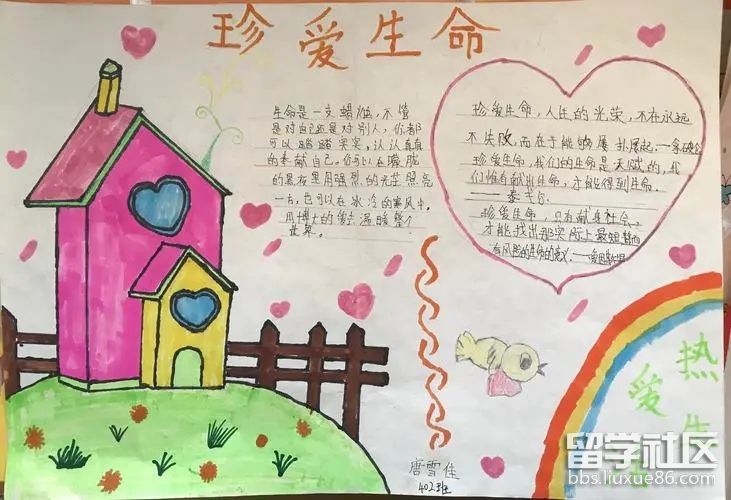 珍爱生命
生命是一支蜡烛,不管
是对自己还是对别人,你都
可以踏踏实实,认认真真
的奉献自己。你可以在朦胧
的黑夜里用强烈的光芒照亮
一方,也可以在冰冷的寒风中,
用博大的爱心温暖整个
世界。
珍爱生命,人生的光荣,不在永远
不失败,而在于能够屡扑屡起。——拿破仑
珍爱生命,我们的生命是天赋的,我
们惟有献出生命,才能得到生命。
泰戈尔
珍爱生命,只有献身社会,
才能找出那实际上最短暂而
有风险的生命的意义。——爱因斯坦
热爱生
唐雪佳
402班
留学社区
bbs.liuxue86.com